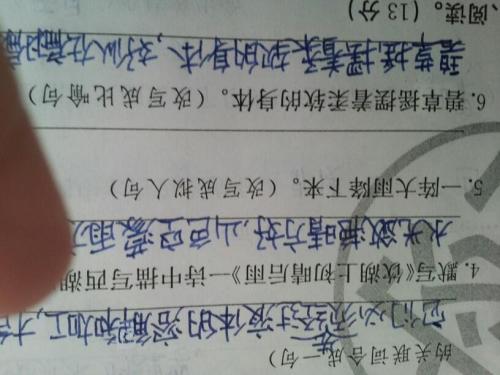 的关联词合成一句)
它们必须先经过液体的溶解和加工,才
4. 默写《饮湖上初晴后雨》一诗中描写西湖
水光潋滟晴方好,山色空蒙雨
5. 一阵大雨降下来。(改写成拟人句)
6. 碧草摇摆着柔软的身体。(改写成比喻句)
碧草摇摆着柔软的身体,好似在
、阅读。(13分)